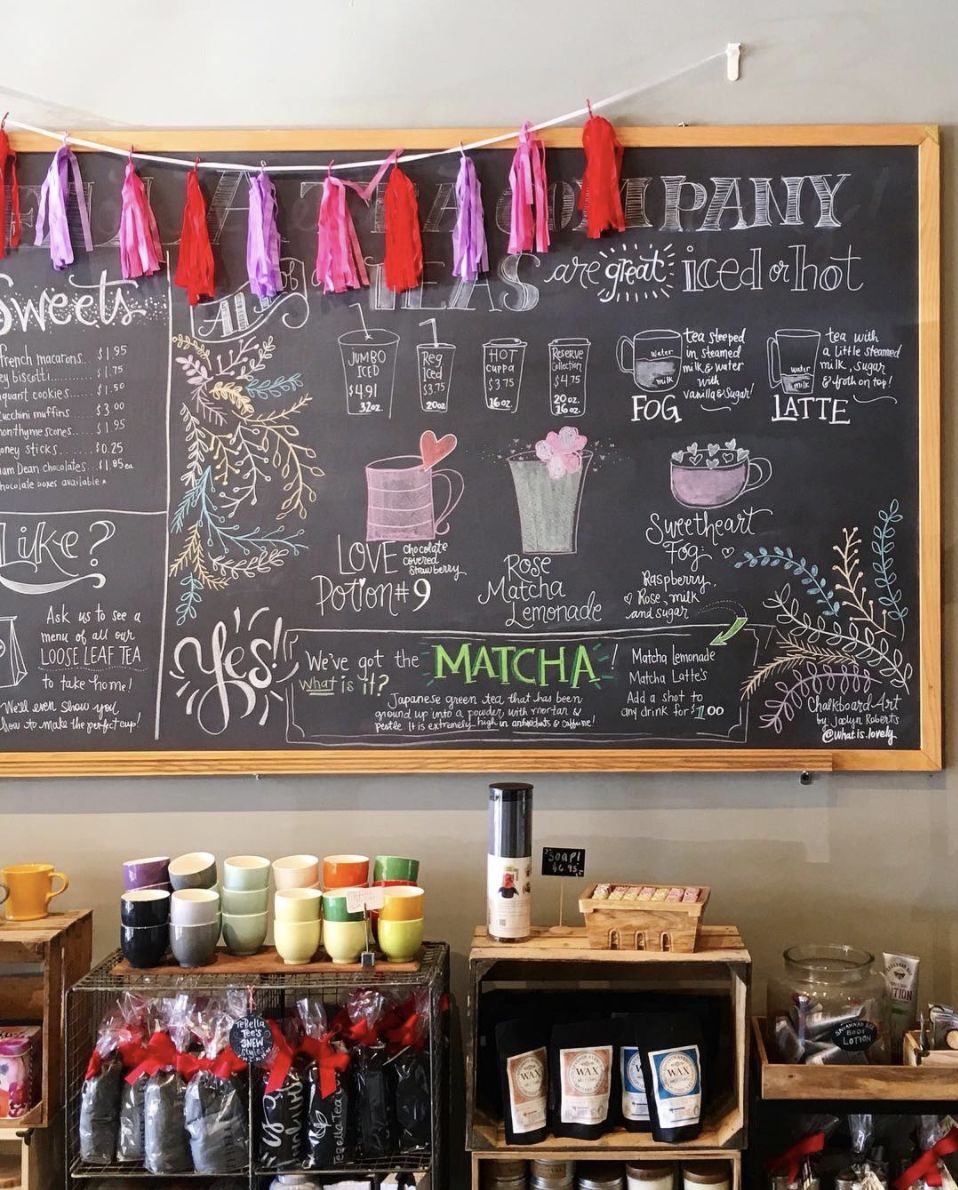 TEA COMPANY
All of our TEAS are great iced or hot
Sweets
french macarons... $1.95
biscotti......... $1.75
cookies.... $1.50
zucchini muffins... $3.00
scones.... $1.95
sticks..... $0.25
Dean chocolates... $1.85 ea
chocolate boxes available *
Like?
Ask us to see a
menu of all our
LOOSE LEAF TEA
to take home!
We'll even show you
how to make the perfect cup!
JUMBO
ICED
$4.91
32oz.
Reg
Iced
$3.75
20oz
HOT
cuppa
$3.75
16oz
Reserve
Collection
$4.75
20oz
16oz
water
milk
FOG
tea steeped
in steamed
milk & water
with
vanilla & sugar!
water
milk
LATTE
tea with
a little steamed
milk, sugar
& froth on top!
LOVE
Potion #9
chocolate
covered
strawberry
Rose
Matcha
Lemonade
Sweetheart
Fog
Raspberry,
Rose, milk
and sugar
Yes!
We've got the MATCHA!
what is it?
Japanese green tea that has been
ground up into a powder, with mortar &
pestle. It is extremely high in & caffeine!
Matcha Lemonade
Matcha Latte's
Add a shot to
any drink for $1.00
Chalkboard Art
by Jaclyn Roberts
@what.is.lovely
SOAP!
$6.95
TeBella
Tee's
NEW
Style
SAVANNAH BEE
BODY
LOTION
LOTION
WAX
WAX
TeBella Tea